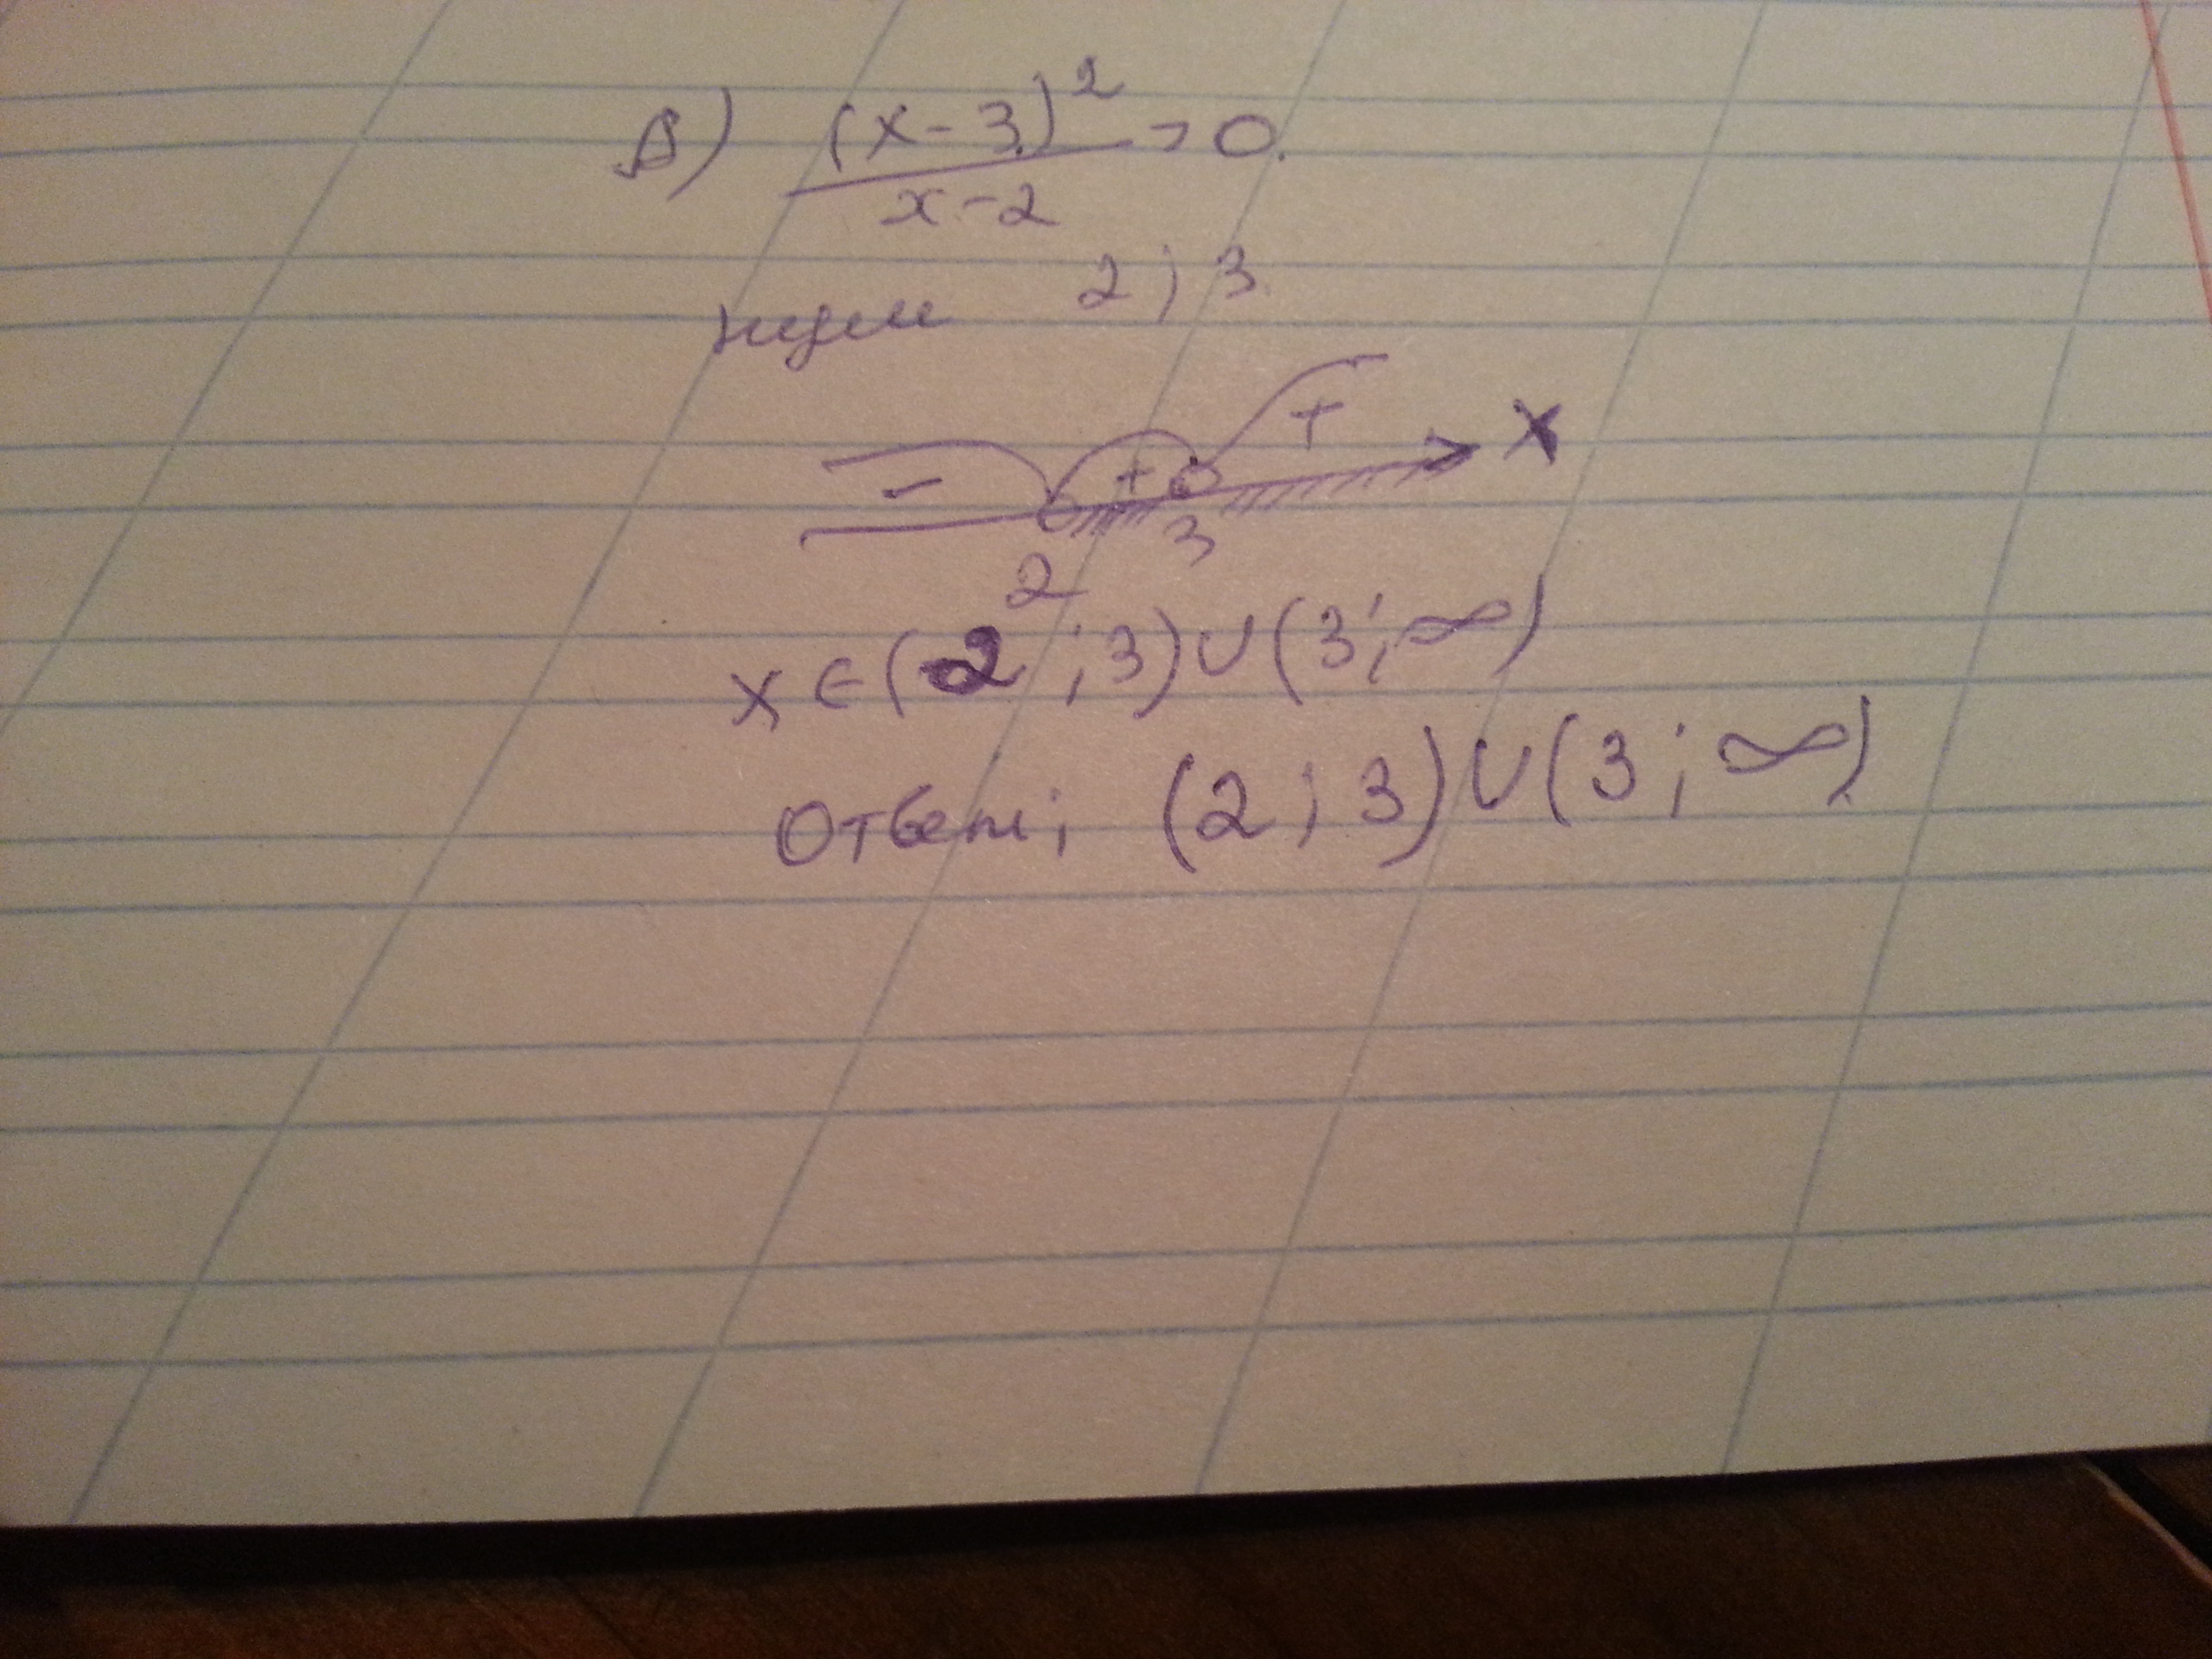 в) (x-3)² / x-2 > 0.
нули 2; 3.
- + + x
2 3
x ∈ (2; 3) ∪ (3; ∞)
Ответ; (2; 3) ∪ (3; ∞)